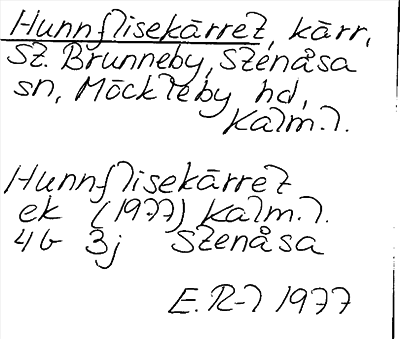 Hunnflisekärret, kärr,
St. Brunneby, Stenåsa
sn, Möckleby hd,
Kalm.l.
Hunnflisekärret
ek (1977) Kalm.l.
4G 3j Stenåsa
E.R-l 1977